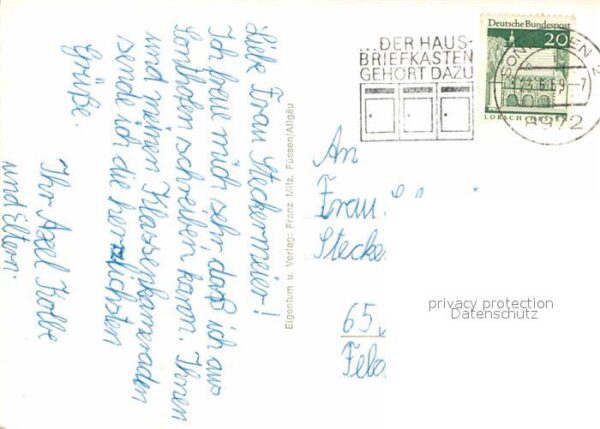 Liebe Frau Steckermeier!
Ich freue mich sehr, daß ich aus
Sonthofen schreiben kann. Ihnen
und meinen Klassenkameraden
sende ich die herzlichsten
Grüße.
Ihr Axel Kolbe
und Eltern.
Eigentum u. Verlag: Franz Milz, Füssen/Allgäu
...DER HAUS-
BRIEFKASTEN
GEHÖRT DAZU
Deutsche Bundespost
20
LORSCH
8972
An
Frau
Stecke
65
privacy protection
Datenschutz